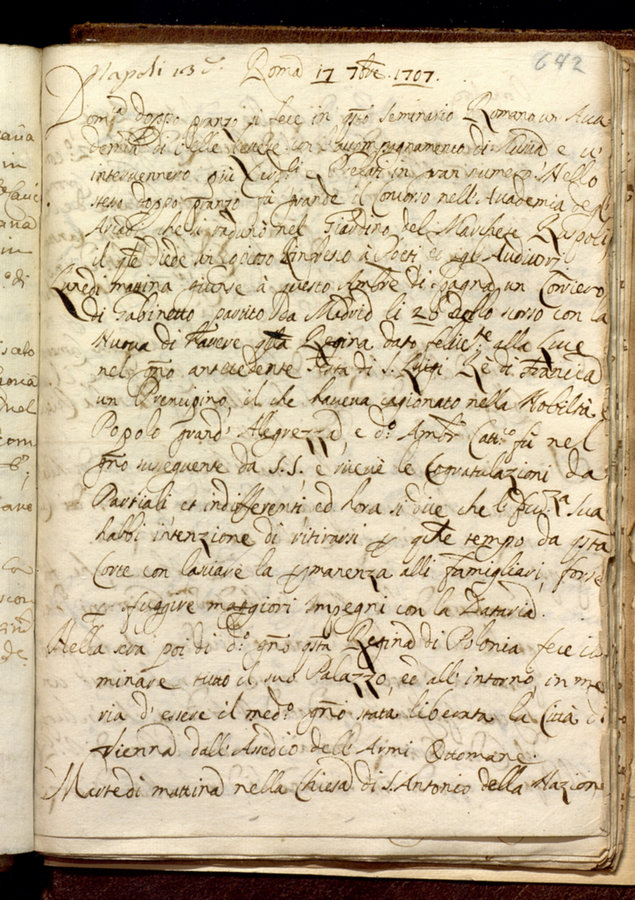 642
Napoli 13 Roma 17 7bre 1707.
Domca doppo pranzo si fece in qsto Seminario Romano un Acca
demia di belle lettere con di Musica e vi
intervennero più Prelati in gran numero. Nello
stesso doppo pranzo fu grande il Concorso nell'Academia degl'
Arcadi che si radunò nel Giardino del Marchese Ruspoli
il qle diede un Rinfresco a Poeti et agl'Auditori
Lunedi mattina giunse à questo Ambre di Spagna un Corriero
di Gabinetto partito da Madrid li 26 dello scorso con la
Nuova di havere qsta Regina dato felicete alla Luce
nel gno antecedente festa di S. Luigi Rè di Francia
un Prencipino, il che haveva cagionato nella Nobiltà e
Popolo grand'Alegrezza, e do Ambre Cattco fù nel
gno susseguente da S.S., e riceve le Congratulazioni da
Partiali et indifferenti, ed hora si dice che l'Eccza sua
habbi intenzione di ritirarsi p qlche tempo da qsta
Corte con lasciare la pmanenza alli famigliari, forse
p sfuggire maggiori Impegni con la Dataria.
Nella sera poi di do gno qsta Regina di Polonia fece illu
minare tutto il suo Palazzo, ed all'intorno, in memo
ria d'essere il medo gno stata liberata la Città di
Vienna dall'Assedio dell'Armi Ottomane.
Martedi mattina nella Chiesa di S. Antonio della Nazione